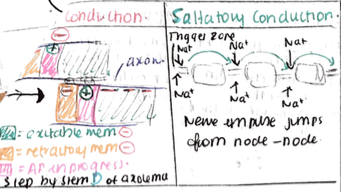 Conduction.
axon
= excitable mem
= refractory mem
= AP in progress.
Step by stem D of axolema
Saltatory Conduction.
Trigger zone
Na+ Na+ Na+
Na+ Na+ Na+
Neve impulse jumps
from node -node.